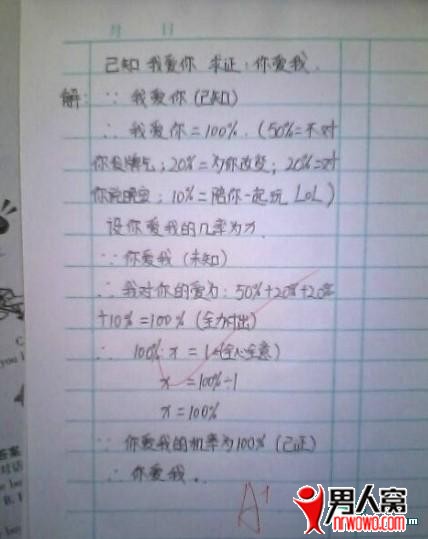 月 日
已知 我爱你 求证：你爱我.
解：∵ 我爱你 (已知)
∴ 我爱你 = 100%. (50%=不对
你发脾气; 20%=为你改变; 20%=对
你说晚安; 10%=陪你一起玩 LOL)
设你爱我的几率为x.
∵ 你爱我 (未知)
∴ 我对你的爱为: 50%+20%+20%
+10%=100% (全力付出)
∴ 100%:x = 1 (全心全意)
x =100%÷1
x =100%
∵ 你爱我的机率为100% (已证)
∴ 你爱我.
A+
男人窝
nrwowo.com